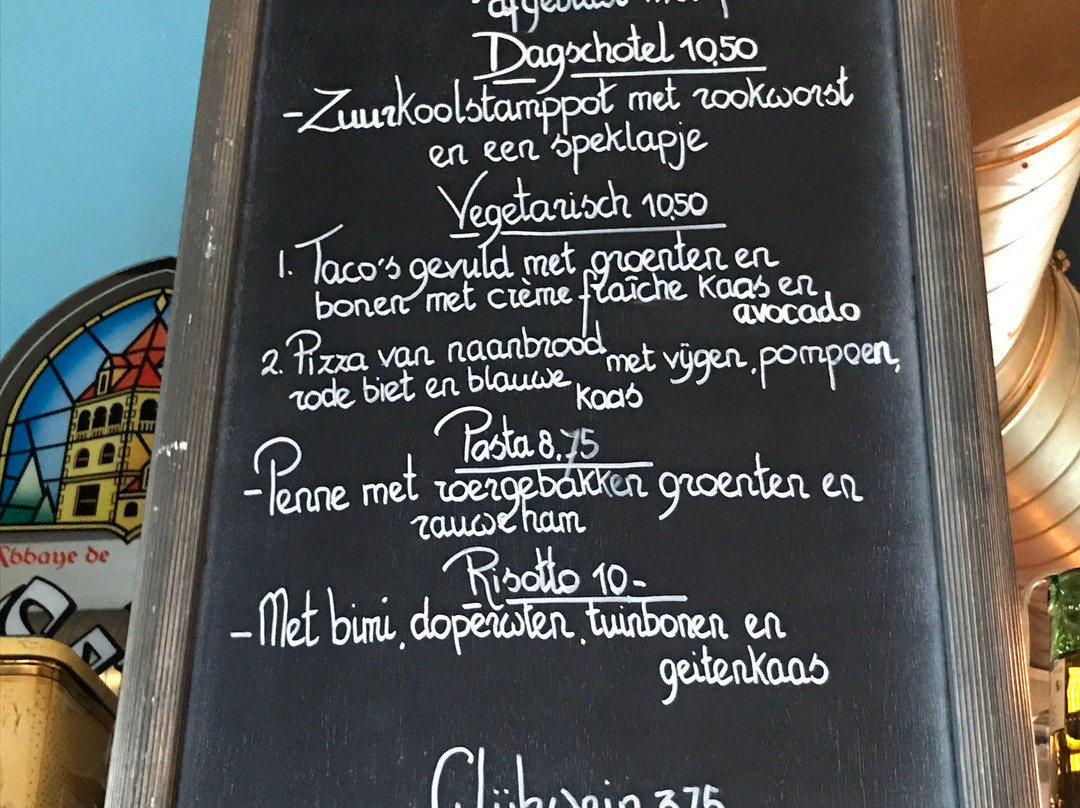 Dagschotel 10,50
- Zuurkoolstamppot met rookworst
en een speklapje
Vegetarisch 10,50
1. Taco's gevuld met groenten en
bonen met crème fraîche kaas en
avocado
2. Pizza van naanbrood met vijgen, pompoen,
rode biet en blauwe kaas
Pasta 8,75
- Penne met roergebakken groenten en
rauwe ham
Risotto 10-
- Met bimi, doperwten, tuinbonen en
geitenkaas
Glühwein 3,75
Abbaye de